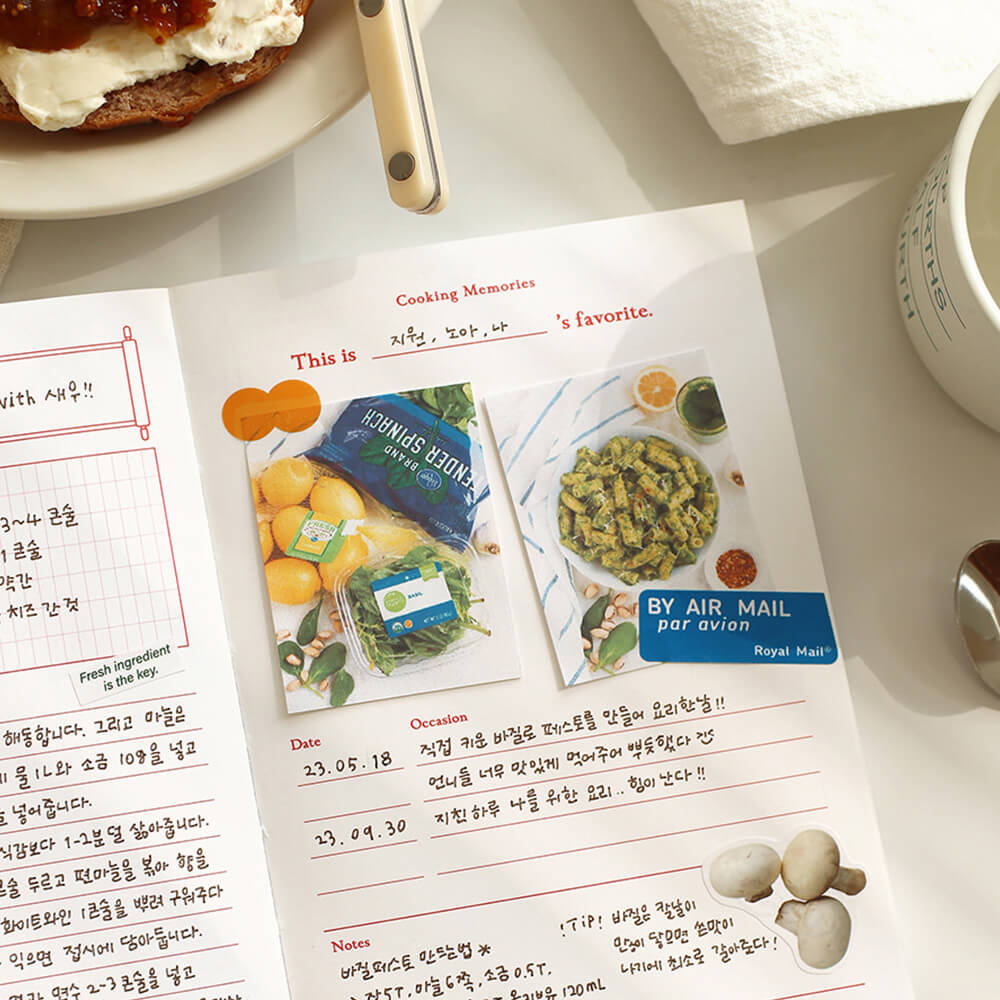 with 새우!!
3~4 큰술
1 큰술
약간
치즈 간 것
Fresh ingredient
is the key.
해동합니다. 그리고 마늘은
물 1L와 소금 10g을 넣고
넣어줍니다.
식감보다 1-2분 덜 삶아줍니다.
큰술 두르고 편마늘을 볶아 향을
화이트와인 1큰술을 뿌려 구워주다
익으면 접시에 담아둡니다.
면수 2-3큰술을 넣고
Cooking Memories
This is 지원, 노아, 나 's favorite.
TENDER SPINACH
BRAND
FRESH
BASIL
BY AIR MAIL
par avion
Royal Mail®
Date
Occasion
23.05.18
직접 키운 바질로 페스토를 만들어 요리한날!!
언니들 너무 맛있게 먹어주어 뿌듯했다
23.09.30
지친하루 나를 위한 요리.. 힘이 난다!!
Notes
바질페스토 만드는법 *
잣5T, 마늘6쪽, 소금 0.5T,
올리브유 120mL
!TIP! 바질은 칼날이
많이 닿으면 쓴맛이
나기에 최소로 갈아준다!
CUP
FOURTHS
HALF
FOURTH